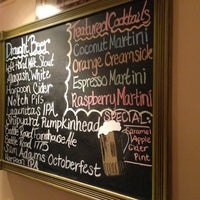 Draught Beer
Allagash White
Harpoon Cider
Notch Pils
Lagunitas IPA
Shipyard Pumpkinhead
Farmhouse Ale
1775
Sam Adams Octoberfest
Harpoon IPA
Featured Cocktails
Coconut Martini
Orange Creamside
Espresso Martini
Raspberry Martini
SPECIAL:
Caramel
Apple
Cider
Pint